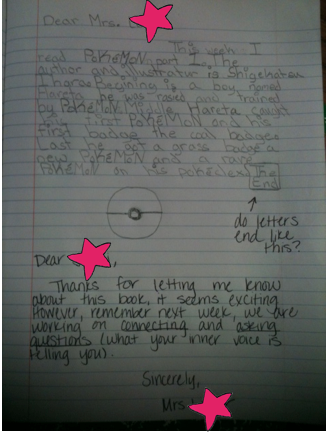 Dear Mrs.
This week I
read PoKéMoN part I. The
author and illustratur is Shigekatsu
Begining is a boy named
Hareta he was rased and trained
by PoKéMoN. Hareta caught
his first PoKéMoN and his
first badge the coal badge.
Last he got a grass badge a
new PoKéMoN and a rare
PoKéMoN on his pokedex. The
End
do letters
end like
this?
Dear ,
Thanks for letting me know
about this book, it seems exciting
However, remember next week, we are
working on connecting and asking
questions (what your inner voice is
telling you).
Sincerely,
Mrs.